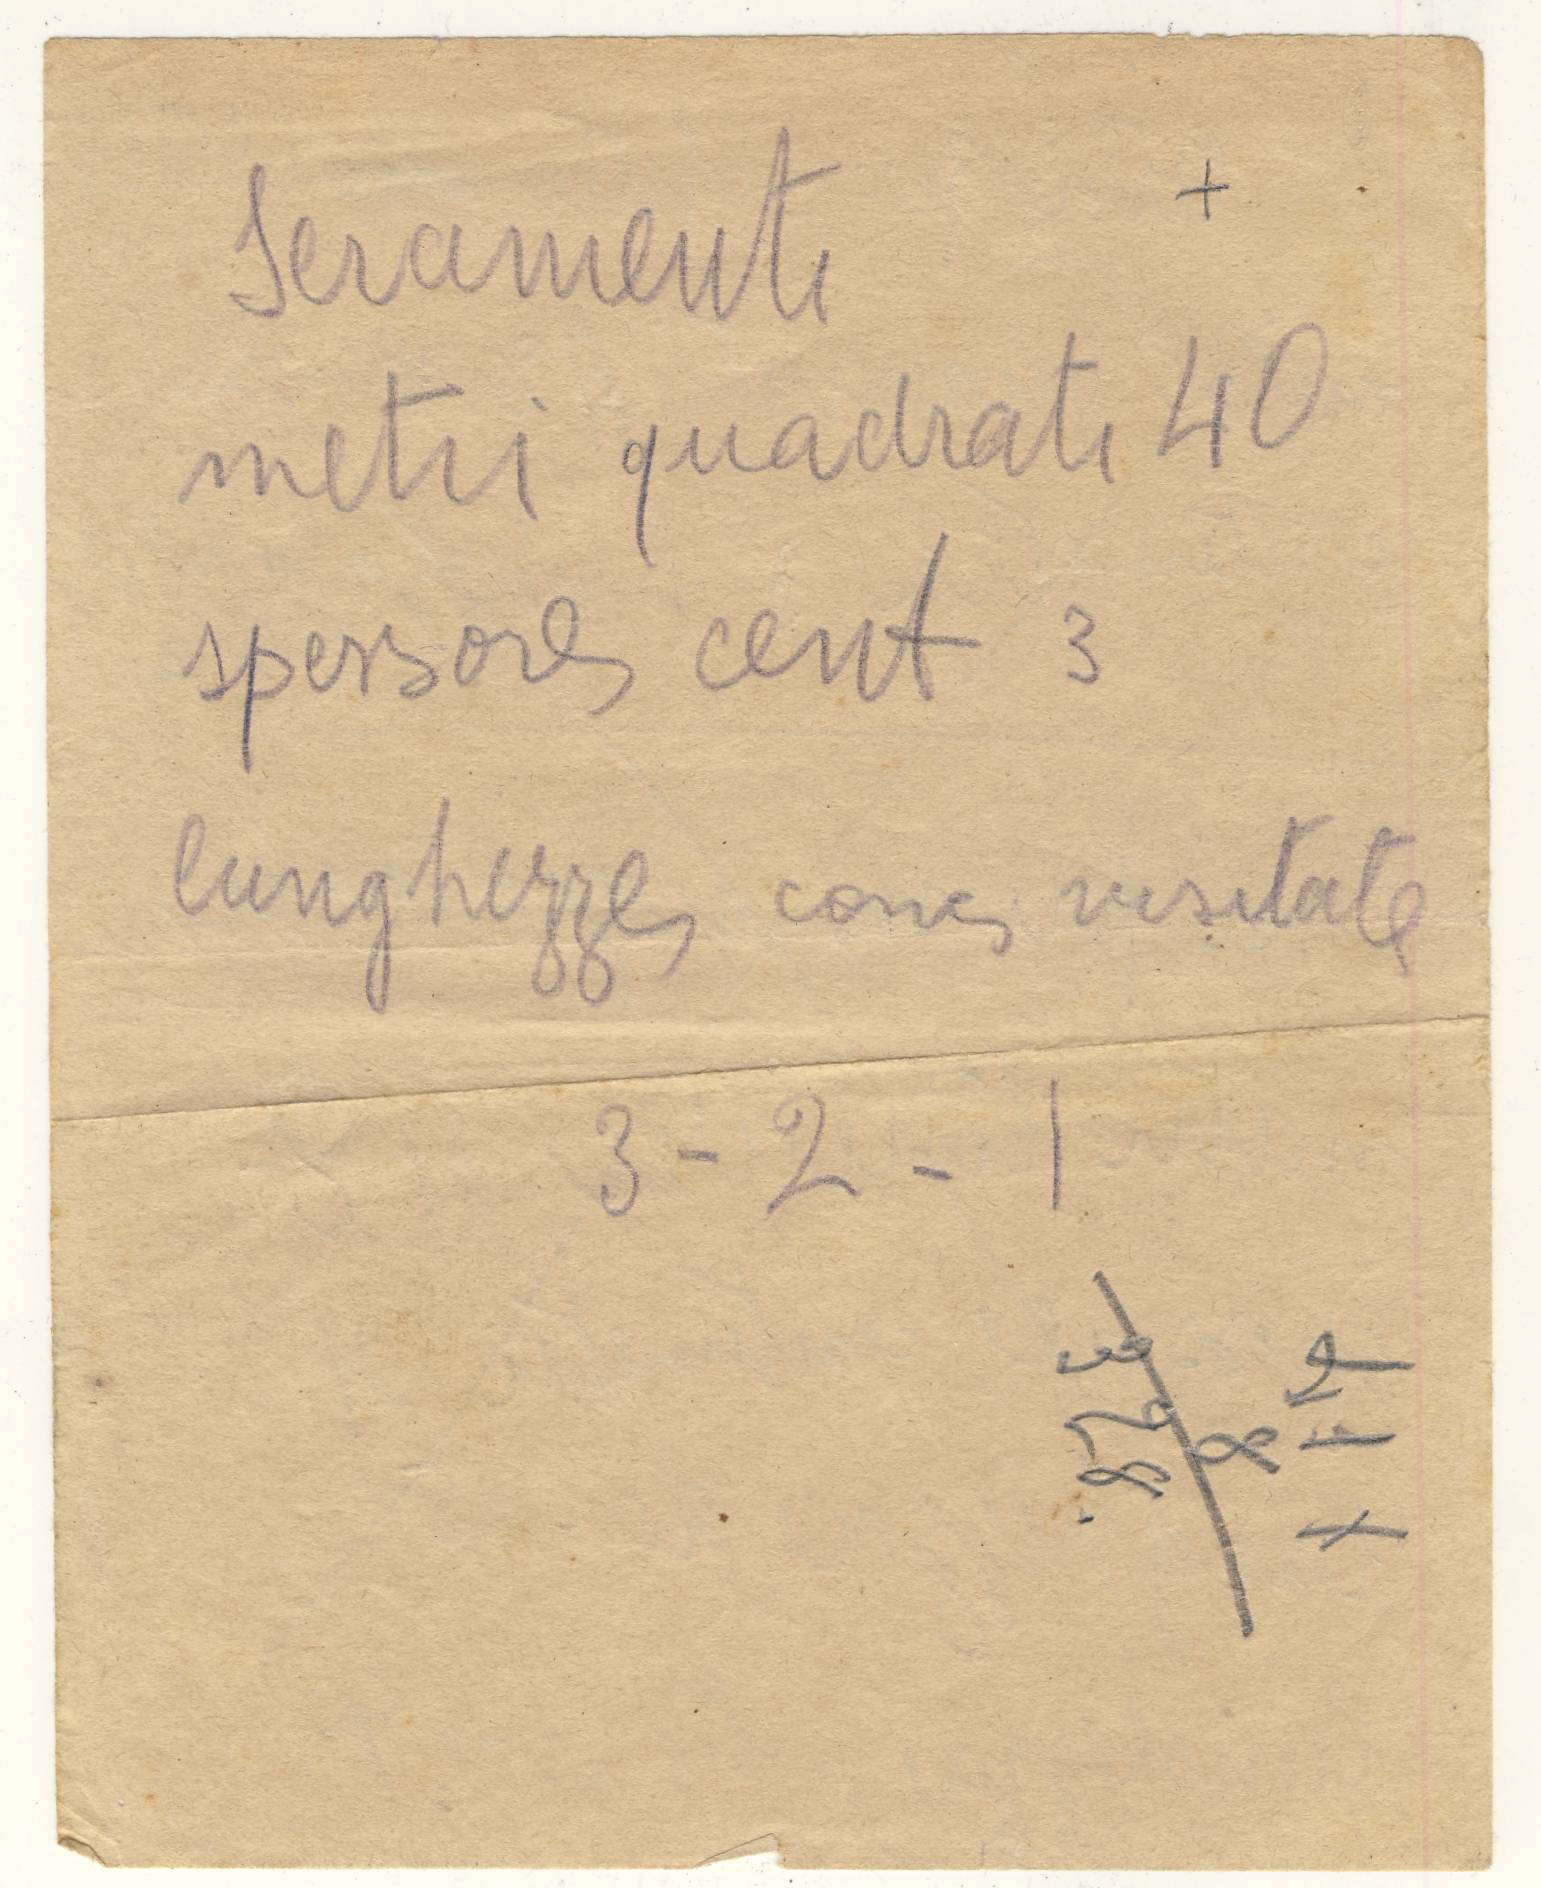 +
Seramenti
metri quadrati 40
spessore cent 3
lunghezze come
3 - 2 - 1